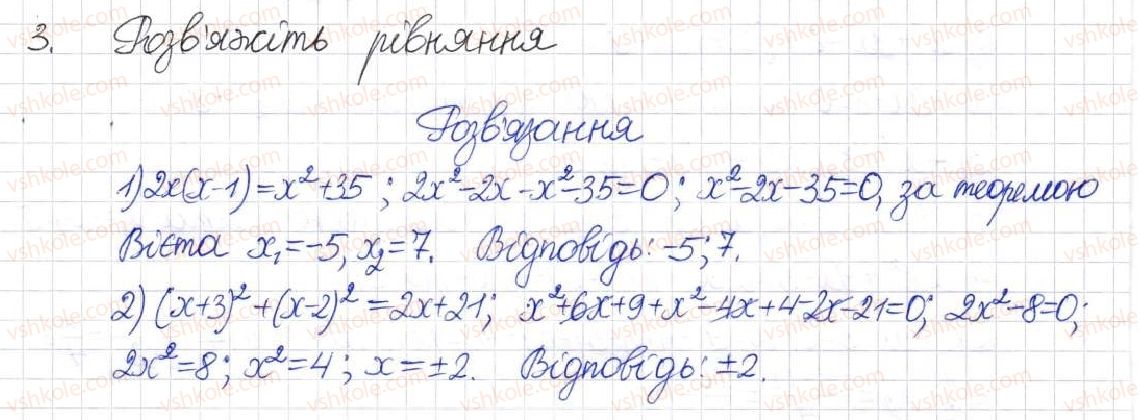 3. Розв'яжіть рівняння
Розв'язання
1) 2x(x-1)=x²+35; 2x²-2x-x²-35=0; x²-2x-35=0, за теоремою
Вієта x₁=-5, x₂=7. Відповідь: -5; 7.
2) (x+3)²+(x-2)²=2x+21; x²+6x+9+x²-4x+4-2x-21=0; 2x²-8=0;
2x²=8; x²=4; x=±2. Відповідь: ±2.